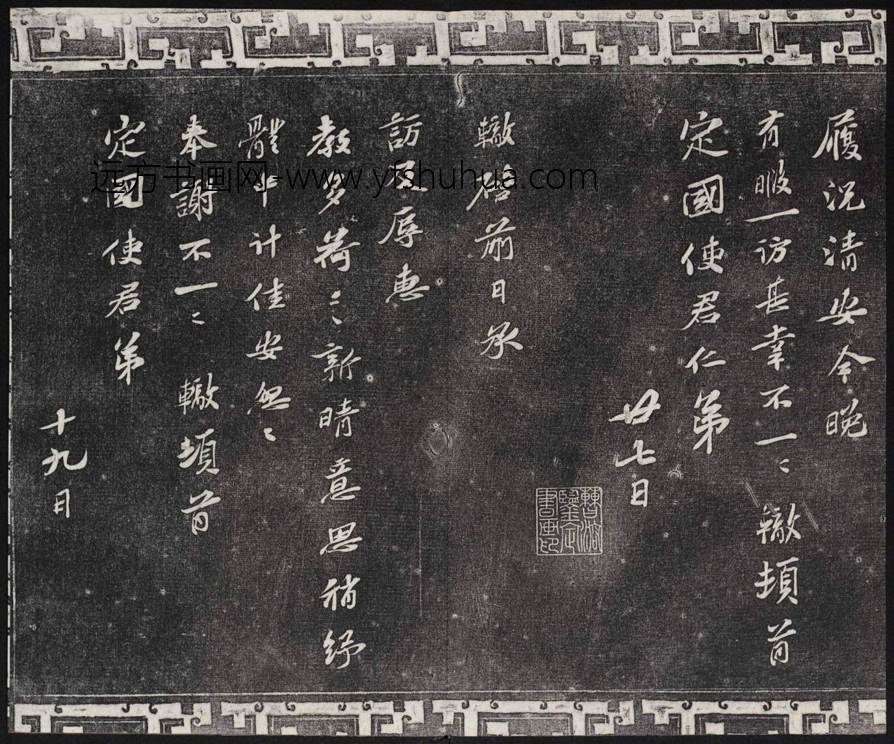 履況清安今晚
有暇一訪甚幸不一〻 轍頓首
定國使君仁弟
廿七日
曹溶鑒定書畫印
轍啓前日承
訪辱惠
教多荷〻新晴意思稍紓
體中計佳安怱〻
奉謝不一〻 轍頓首
定國使君弟
十九日
远方书画网-www.yfshuhua.com